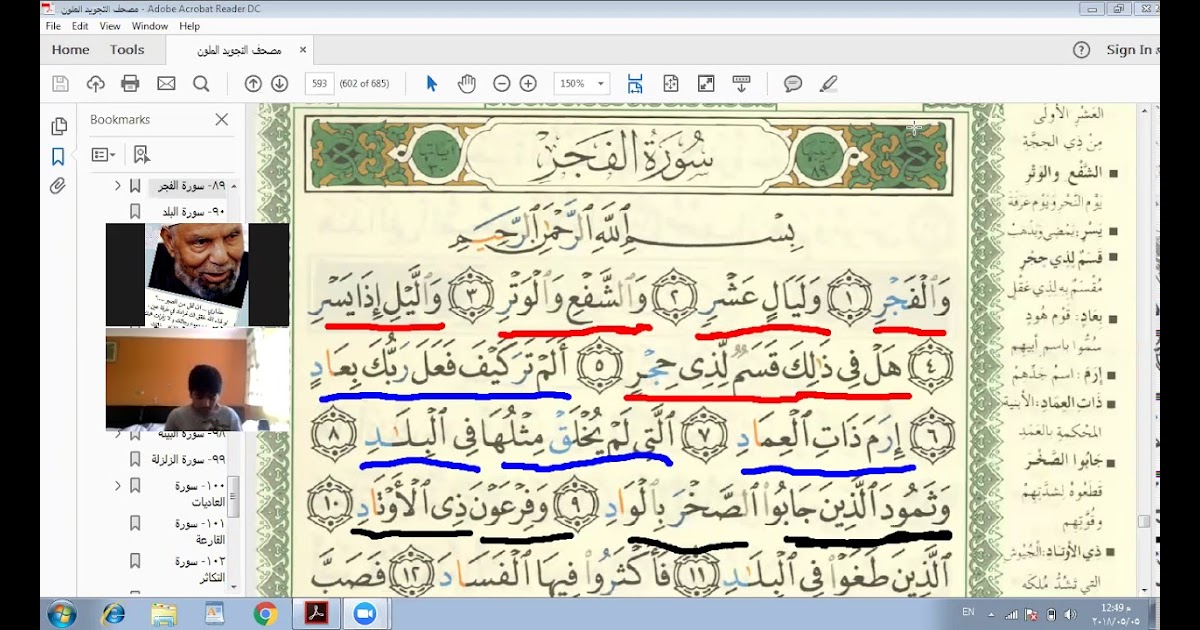 مصحف التجويد الملون - Adobe Acrobat Reader DC
File Edit View Window Help
Home Tools مصحف التجويد الملون × Sign In
593 (602 of 685) 150%
Bookmarks
٨٩- سورة الفجر
٩٠- سورة البلد
٩٨- سورة البينة
٩٩- سورة الزلزلة
١٠٠- سورة
العاديات
١٠١- سورة
القارعة
١٠٢- سورة
التكاثر
سُورَةُ الفَجْرِ
بِسْمِ اللَّهِ الرَّحْمَٰنِ الرَّحِيمِ
وَالْفَجْرِ ١ وَلَيَالٍ عَشْرٍ ٢ وَالشَّفْعِ وَالْوَتْرِ ٣ وَاللَّيْلِ إِذَا يَسْرِ
٤ هَلْ فِي ذَٰلِكَ قَسَمٌ لِّذِي حِجْرٍ ٥ أَلَمْ تَرَ كَيْفَ فَعَلَ رَبُّكَ بِعَادٍ
٦ إِرَمَ ذَاتِ الْعِمَادِ ٧ الَّتِي لَمْ يُخْلَقْ مِثْلُهَا فِي الْبِلَٰدِ ٨
وَثَمُودَ الَّذِينَ جَابُوا الصَّخْرَ بِالْوَادِ ٩ وَفِرْعَوْنَ ذِي الْأَوْتَادِ ١٠
الَّذِينَ طَغَوْا فِي الْبِلَٰدِ ١١ فَأَكْثَرُوا فِيهَا الْفَسَادَ ١٢ فَصَبَّ
العَشْرِ الأُولَى
مِنْ ذِي الحِجَّة
الشَّفْعِ والوَتْرِ
يَوْمِ النَّحْرِ وَيَوْمِ عَرَفَة
يَسْرِ: يَمْضِي وَيَذْهَبُ
قَسَمٌ لِذِي حِجْرٍ
مُقْسَمٌ بِهِ لِذِي عَقْلٍ
بِعَادٍ: قَوْمُ هُودٍ
سُمُّوا بِاسْمِ أَبِيهِم
إِرَمَ: اسْمُ جَدِّهِمْ
ذَاتِ العِمَادِ: الأَبْنِيَة
المُحْكَمَةِ بِالعَمَدِ
جَابُوا الصَّخْرَ
قَطَعُوهُ لِشِدَّتِهِمْ
وَقُوَّتِهِم
ذِي الأَوْتَادِ: الجُيُوشِ
الَّتِي تَشُدُّ مُلْكَه
EN 12:49 م
٢٠١٨/٠٥/٠٥